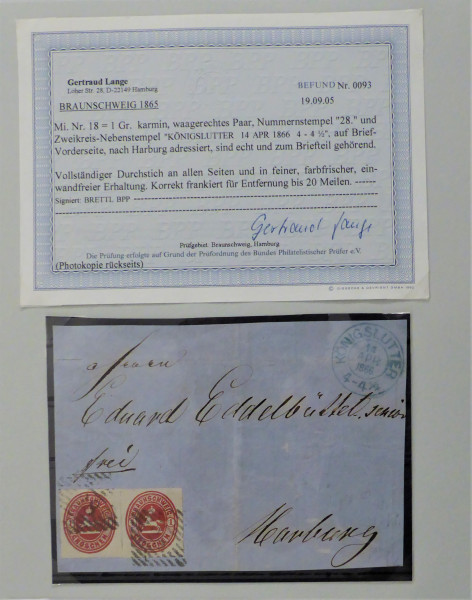 Gertraud Lange
Loher Str. 28, D-22149 Hamburg
BEFUND Nr. 0093
BRAUNSCHWEIG 1865
19.09.05
Mi. Nr. 18 = 1 Gr. karmin, waagerechtes Paar, Nummernstempel "28." und
Zweikreis-Nebenstempel "KÖNIGSLUTTER 14 APR 1866 4 - 4 ½", auf Brief-
Vorderseite, nach Harburg adressiert, sind echt und zum Briefteil gehörend.
Vollständiger Durchstich an allen Seiten und in feiner, farbfrischer, ein-
wandfreier Erhaltung. Korrekt frankiert für Entfernung bis 20 Meilen.
Signiert: BRETTL BPP
Gertraud Lange
Prüfgebiet: Braunschweig, Hamburg
Die Prüfung erfolgte auf Grund der Prüfordnung des Bundes Philatelistischer Prüfer e.V.
(Photokopie rückseits)
KÖNIGSLUTTER
14
APR
1866
4-4½
Herrn
Eduard Eddelbüttel senior
frei
Harburg
BRAUNSCHWEIG
GROSCHEN
BRAUNSCHWEIG
1
GROSCHEN